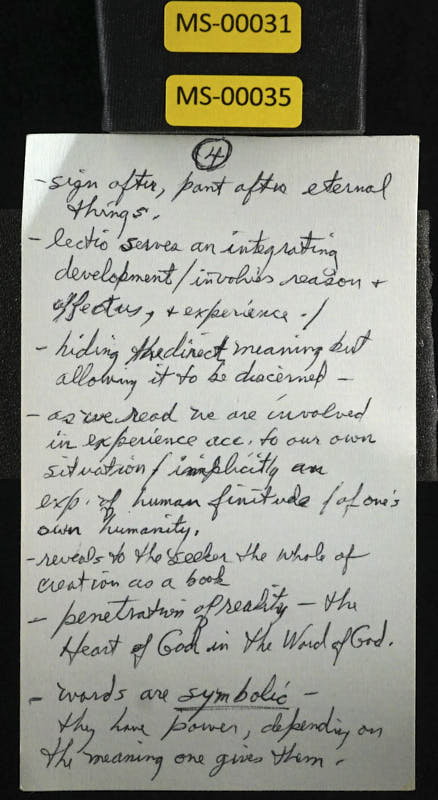 MS-00031
MS-00035
4
- sign after, pant after eternal
things.
- lectio serves an integrating
development / involves reason +
affectus, + experience - /
- hiding the direct meaning but
allowing it to be discerned -
- as we read we are involved
in experience acc. to our own
situation / implicitly an
exp. of human finitude / of one's
own humanity.
- reveals to the seeker the whole of
creation as a book
- penetration of reality - the
Heart of God in the Word of God.
- words are symbolic -
they have power, depending on
the meaning one gives them.